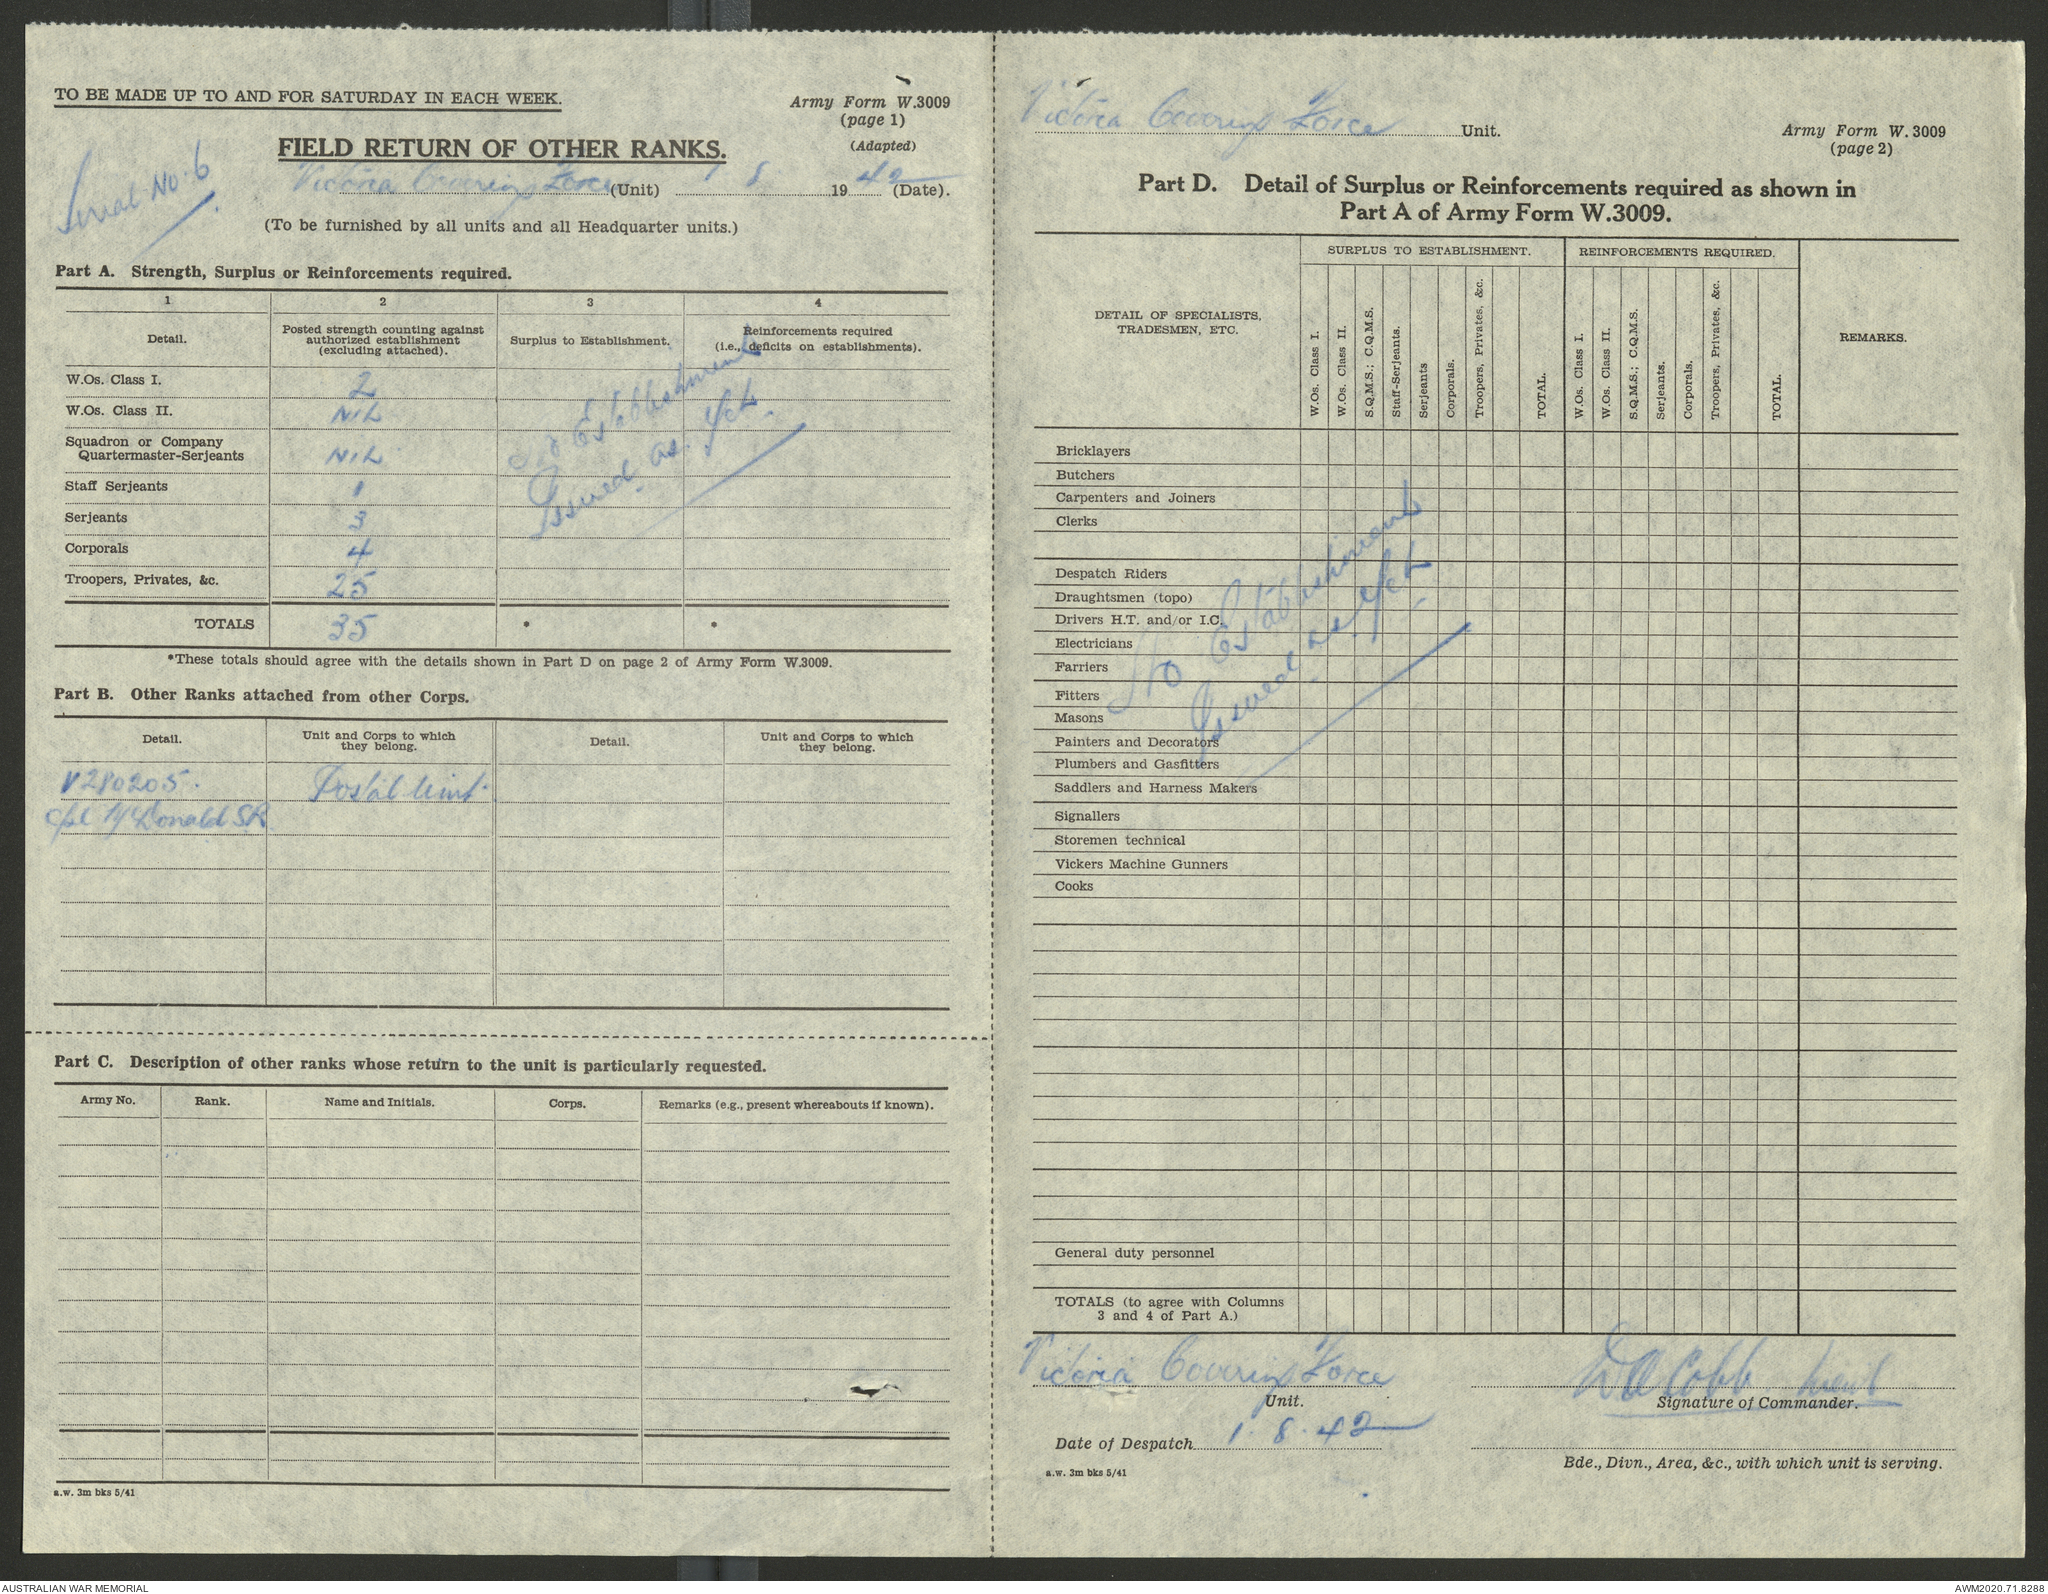 TO BE MADE UP TO AND FOR SATURDAY IN EACH WEEK.
Army Form W.3009
(page 1)
(Adapted)
FIELD RETURN OF OTHER RANKS.
Serial No. 6
Victoria Covering Force (Unit) 1 8 1942 (Date).
(To be furnished by all units and all Headquarter units.)
Part A. Strength, Surplus or Reinforcements required.
1 2 3 4
Detail.
Posted strength counting against authorized establishment (excluding attached).
Surplus to Establishment.
Reinforcements required (i.e., deficits on establishments).
W.Os. Class I. 2
W.Os. Class II. NIL
Squadron or Company Quartermaster-Serjeants NIL
Staff Serjeants 1
Serjeants 3
Corporals 4
Troopers, Privates, &c. 25
No Establishment
Issued as Yet.
TOTALS 35 * *
*These totals should agree with the details shown in Part D on page 2 of Army Form W.3009.
Part B. Other Ranks attached from other Corps.
Detail.
Unit and Corps to which they belong.
Detail.
Unit and Corps to which they belong.
V280205. Postal Unit.
Cpl McDonald SR.
Part C. Description of other ranks whose return to the unit is particularly requested.
Army No. Rank. Name and Initials. Corps. Remarks (e.g., present whereabouts if known).
a.w. 3m bks 5/41
Victoria Covering Force Unit.
Army Form W. 3009
(page 2)
Part D. Detail of Surplus or Reinforcements required as shown in
Part A of Army Form W.3009.
DETAIL OF SPECIALISTS, TRADESMEN, ETC.
SURPLUS TO ESTABLISHMENT.
W.Os. Class I.
W.Os. Class II.
S.Q.M.S.; C.Q.M.S.
Staff-Serjeants.
Serjeants
Corporals.
Troopers, Privates, &c.
TOTAL.
REINFORCEMENTS REQUIRED.
W.Os. Class I.
W.Os. Class II.
S.Q.M.S.; C.Q.M.S.
Serjeants.
Corporals.
Troopers, Privates, &c.
TOTAL.
REMARKS.
Bricklayers
Butchers
Carpenters and Joiners
Clerks
Despatch Riders
Draughtsmen (topo)
Drivers H.T. and/or I.C.
Electricians
Farriers
Fitters
Masons
Painters and Decorators
Plumbers and Gasfitters
Saddlers and Harness Makers
Signallers
Storemen technical
Vickers Machine Gunners
Cooks
No Establishment
Issued as Yet.
General duty personnel
TOTALS (to agree with Columns
3 and 4 of Part A.)
Victoria Covering Force
Unit.
DA Cobb Lieut
Signature of Commander.
Date of Despatch 1. 8. 42
Bde., Divn., Area, &c., with which unit is serving.
a.w. 3m bks 5/41
AUSTRALIAN WAR MEMORIAL
AWM2020.71.8288